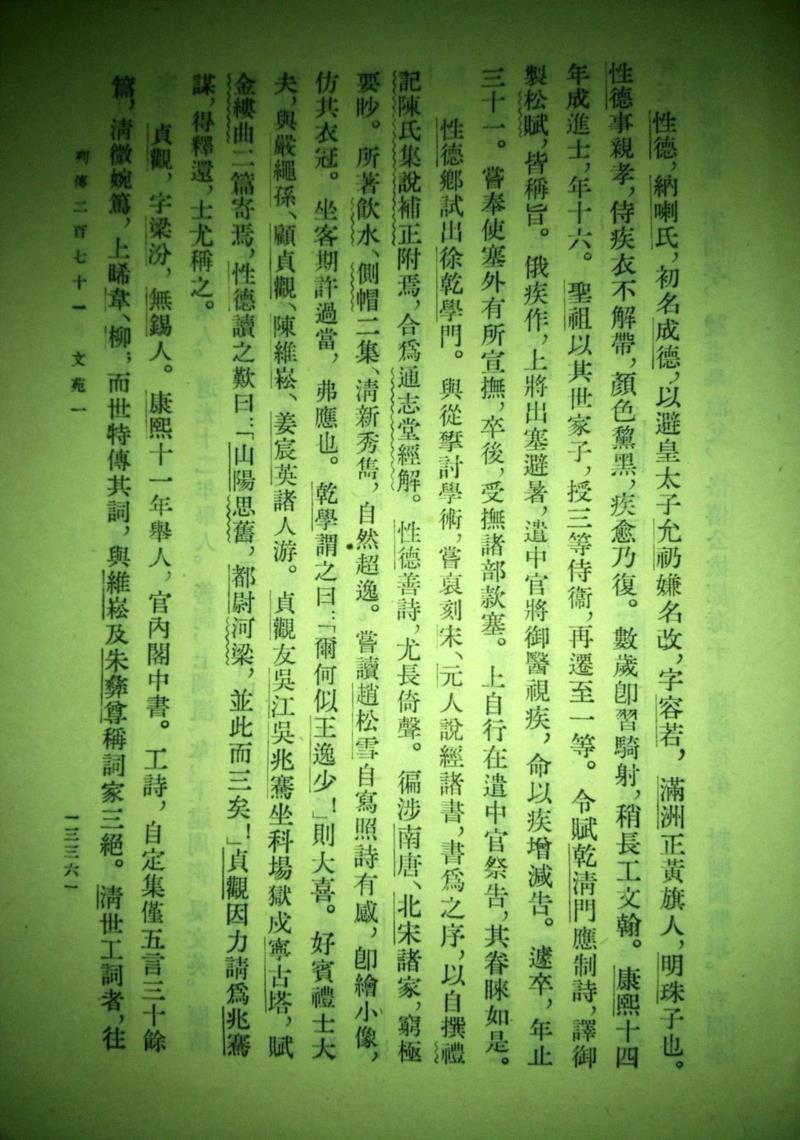 性德，納喇氏，初名成德，以避皇太子允礽嫌名改，字容若，滿洲正黃旗人，明珠子也。
性德事親孝，侍疾衣不解帶，顏色黧黑，疾愈乃復。數歲卽習騎射，稍長工文翰。康熙十四
年成進士，年十六。聖祖以其世家子，授三等侍衞，再遷至一等。令賦乾淸門應制詩，譯御
製松賦，皆稱旨。俄疾作，上將出塞避暑，遣中官將御醫視疾，命以疾增減吿。遽卒，年止
三十一。嘗奉使塞外有所宣撫，卒後，受撫諸部款塞。上自行在遣中官祭吿，其眷睞如是。
性德鄉試出徐乾學門。與從揅討學術，嘗裒刻宋、元人說經諸書，書爲之序，以自撰禮
記陳氏集說補正附焉，合爲通志堂經解。性德善詩，尤長倚聲。徧涉南唐、北宋諸家，窮極
要眇。所著飮水、側帽二集，淸新秀雋，自然超逸。嘗讀趙松雪自寫照詩有感，卽繪小像，
仿其衣冠。坐客期許過當，弗應也。乾學謂之曰：「爾何似王逸少！」則大喜。好賓禮士大
夫，與嚴繩孫、顧貞觀、陳維崧、姜宸英諸人游。貞觀友吳江吳兆騫坐科場獄戍寧古塔，賦
金縷曲二篇寄焉，性德讀之歎曰：「山陽思舊，都尉河梁，並此而三矣！」貞觀因力請爲兆騫
謀，得釋還，士尤稱之。
貞觀，字梁汾，無錫人。康熙十一年舉人，官內閣中書。工詩，自定集僅五言三十餘
篇，淸微婉篤，上睎韋、柳；而世特傳其詞，與維崧及朱彝尊稱詞家三絕。淸世工詞者，往
列傳二百七十一　文苑一
一三三六一